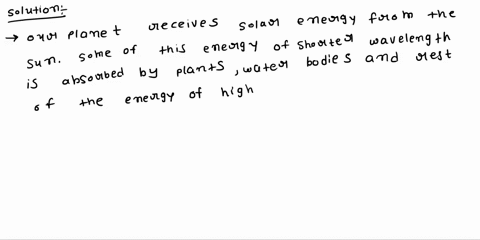 solution:-
→ our planet receives solar energy from the
sun. some of this energy of shorter wavelength
is absorbed by plants, water bodies and rest
of the energy of high